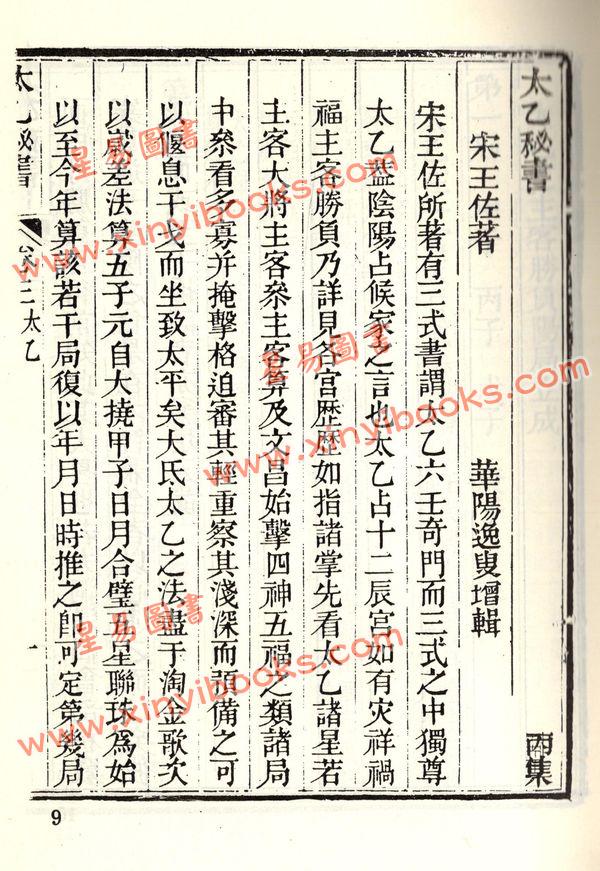 太乙秘書 丙集
宋王佐著 華陽逸叟增輯
宋王佐所著有三式書謂太乙六壬奇門而三式之中獨尊
太乙葢陰陽占候家之言也太乙占十二辰宮如有灾祥禍
福主客勝負乃詳見各宮歴歴如指諸掌先看太乙諸星若
主客大將主客叅主客算及文昌始擊四神五福之類諸局
中叅看多寡并掩擊格迫審其輕重察其淺深而預備之可
以偃息干戈而坐致太平矣大氐太乙之法盡于淘金歌次
以歲差法算五子元自大撓甲子日月合璧五星聯珠為始
以至今年算該若干局復以年月日時推之卽可定第幾局
太乙秘書 二 太乙
9
星易圖書
www.xinyibooks.com
星易圖書
www.xinyibooks.com
星易圖書
www.xinyibooks.com
星易圖書
www.xinyibooks.com